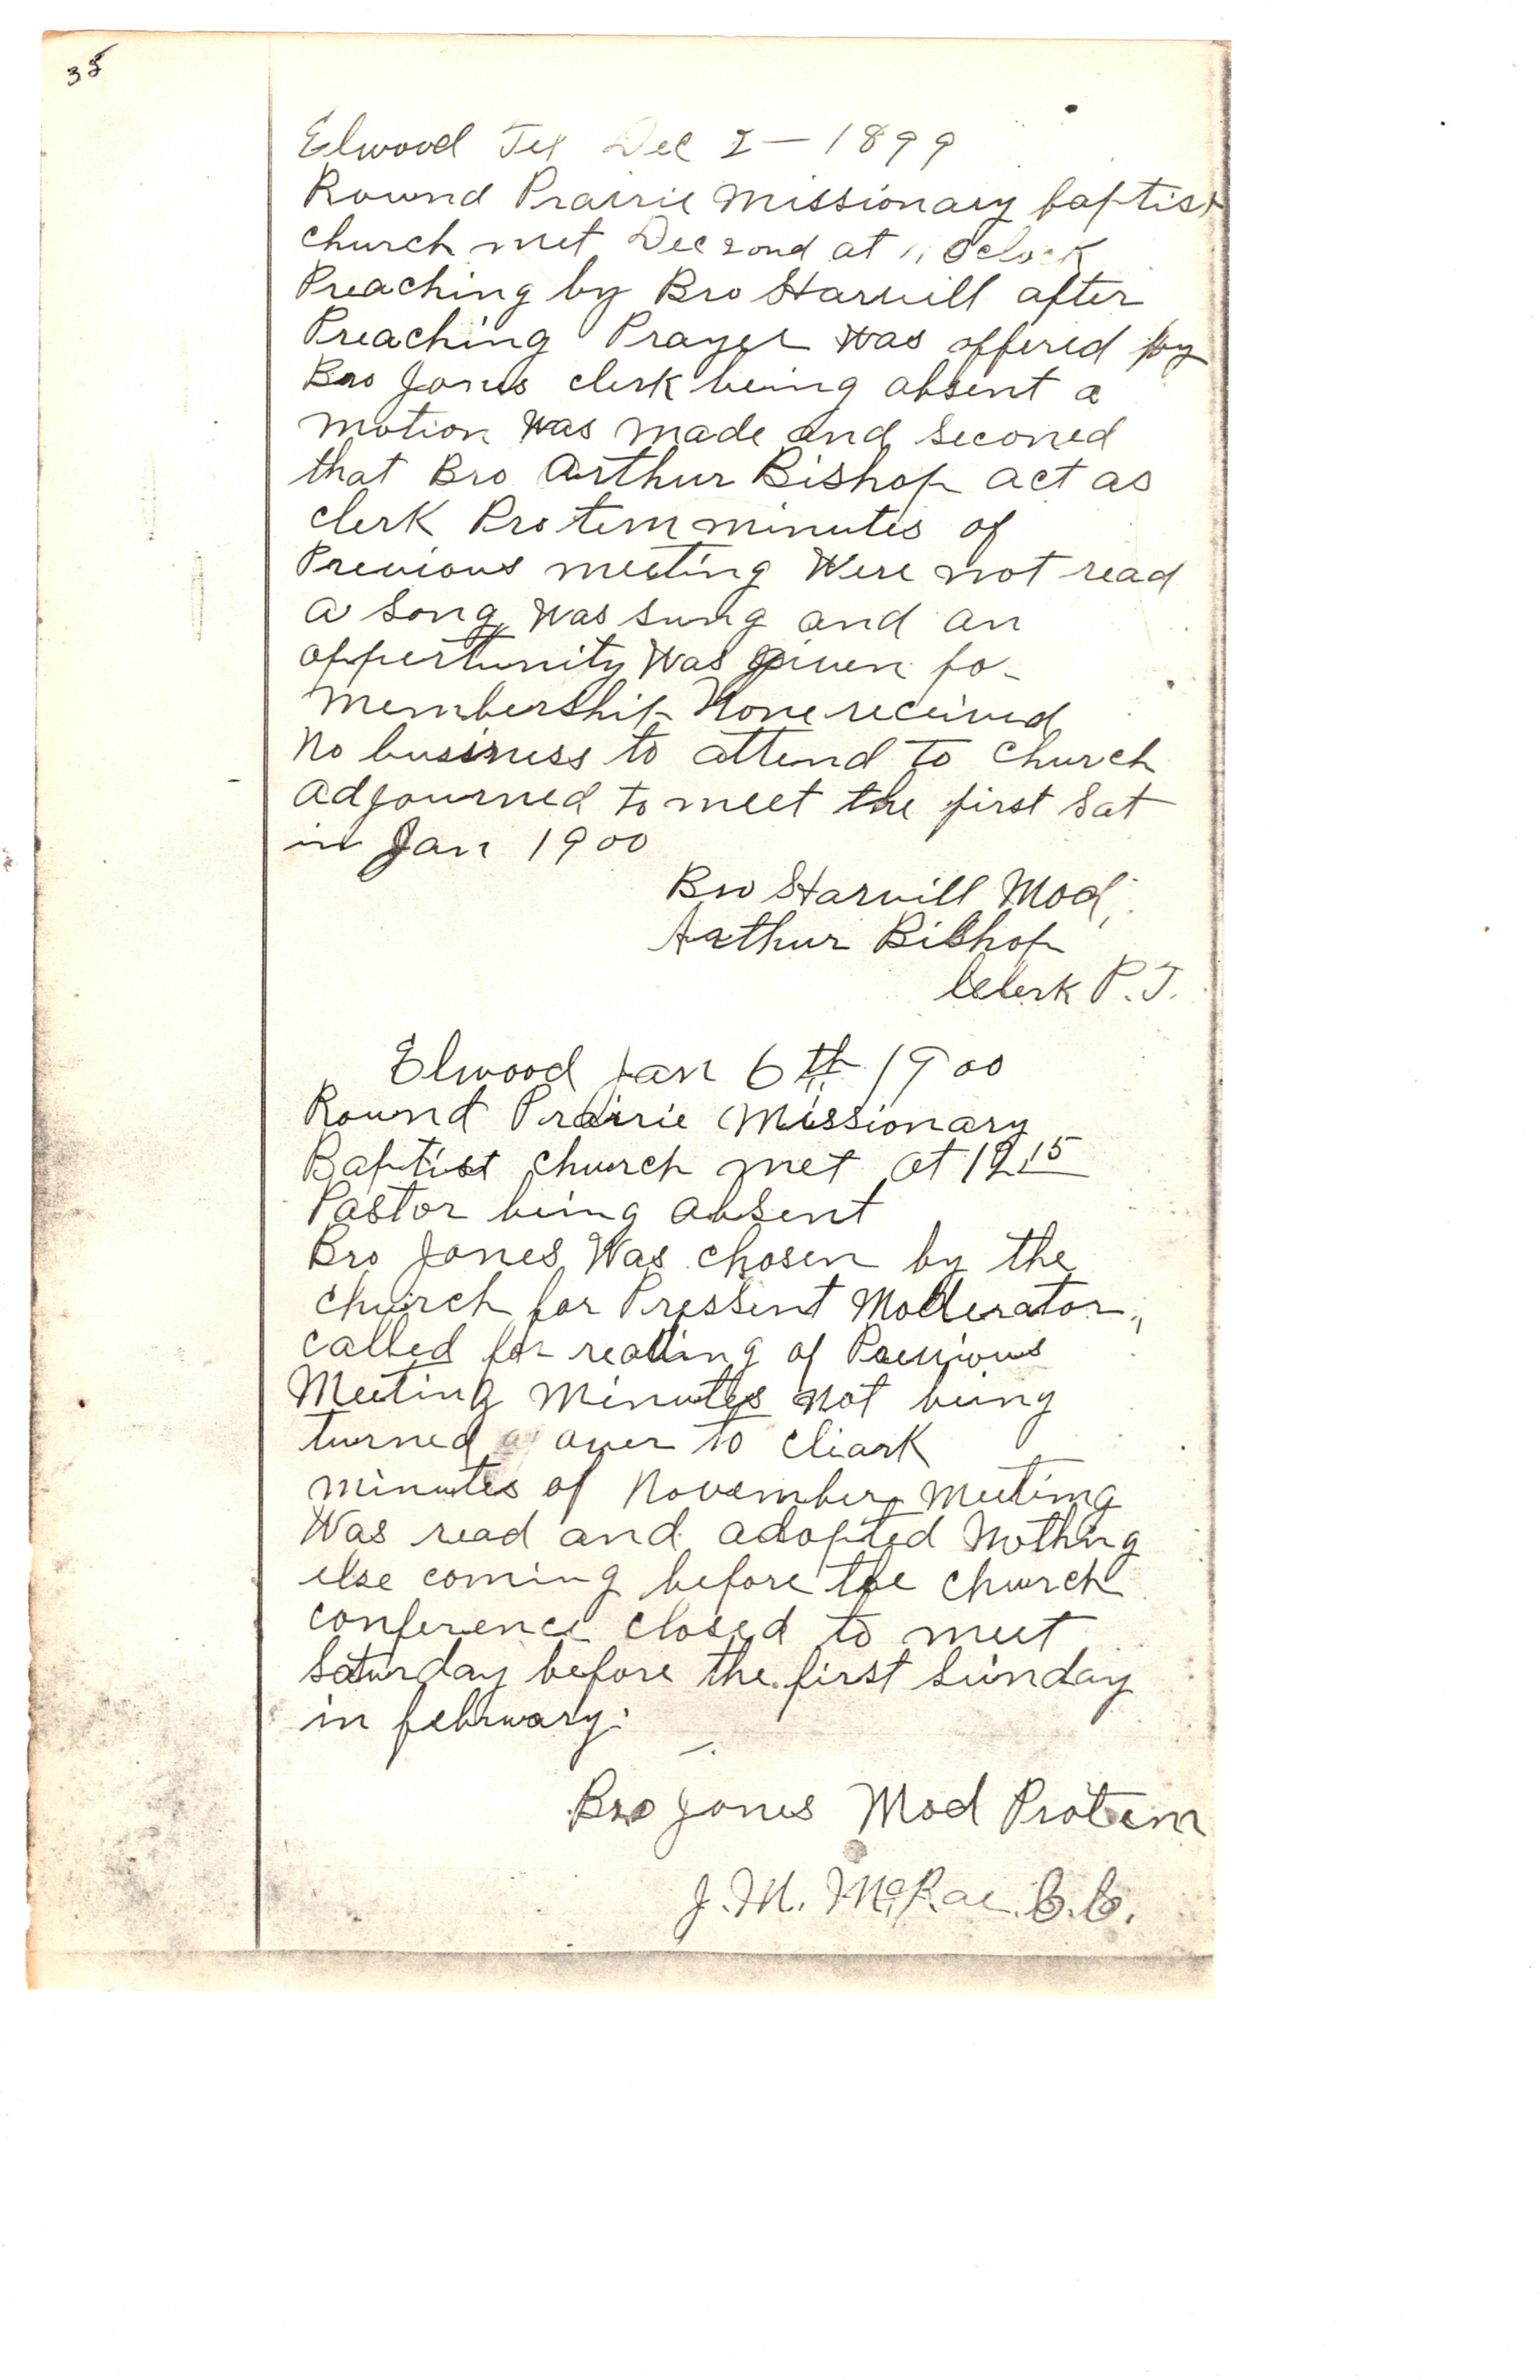 38
Elwood Tex Dec 2 - 1899
Round Prairie Missionary baptist
church met Dec 2ond at 11 Oclock
Preaching by Bro Starvill after
Preaching Prayer was offered by
Bro Jones clerk being absent a
motion was made and seconed
that Bro Arthur Bishop act as
clerk Protem minutes of
Previous meeting Were not read
a song was sung and an
oppertunity was given fo
membership None received
No business to attend to church
adjourned to meet the first Sat
in Jan 1900
Bro Starvill Mod,
Arthur Bishop
Clerk P.T.
Elwood Jan 6th 1900
Round Prairie Missionary
Baptist church met at 12,15
Pastor being absent
Bro Jones Was chosen by the
church for Pressent Moderator,
called for reading of Previous
Meeting Minutes not being
turned over to cliark
minutes of November Meeting
Was read and adopted Nothing
else coming before the church
conference closed to meet
Saturday before the first Sunday
in february:
Bro Jones Mod Protem
J. M. McRae C.C.